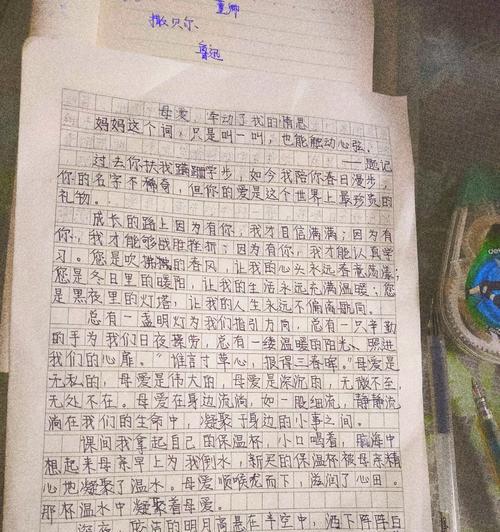 董卿
撒贝尔
鲁迅
母爱，牵动了我的情思
妈妈这个词，只是叫一叫，也能触动心弦。
——题记
过去你扶我蹒跚学步，如今我陪你春日漫步，
你的名字不稀奇，但你的爱是这个世界上最珍贵的
礼物。
成长的路上因为有你，我才自信满满；因为有
你，我才能够战胜挫折；因为有你，我才能认真学
习。您是吹拂的春风，让我的心头永远春意荡漾；
您是冬日里的暖阳，让我的生活永远充满温暖；您
是黑夜里的灯塔，让我的人生永远不偏离航向。
总有一盏明灯为我们指引方向，总有一只辛勤
的手为我们日夜操劳，总有一缕温暖的阳光，照进
我们的心扉。“谁言寸草心，报得三春晖。”母爱是
无私的，母爱是伟大的，母爱是深沉的，无微不至，
无处不在。母爱在身边流淌，如一股细流，静静流
淌在我们的生命中，凝聚于身边的小事之间。
课间我拿起自己的保温杯，小口喝着，脑海中
想起来母亲早上为我倒水，新买的保温杯被母亲精
心地凝聚了温水。母爱顺喉而下，滋润了心田。
那杯温水中凝聚着母爱。
深夜，皎洁的明月高悬在半空中，洒下阵阵白